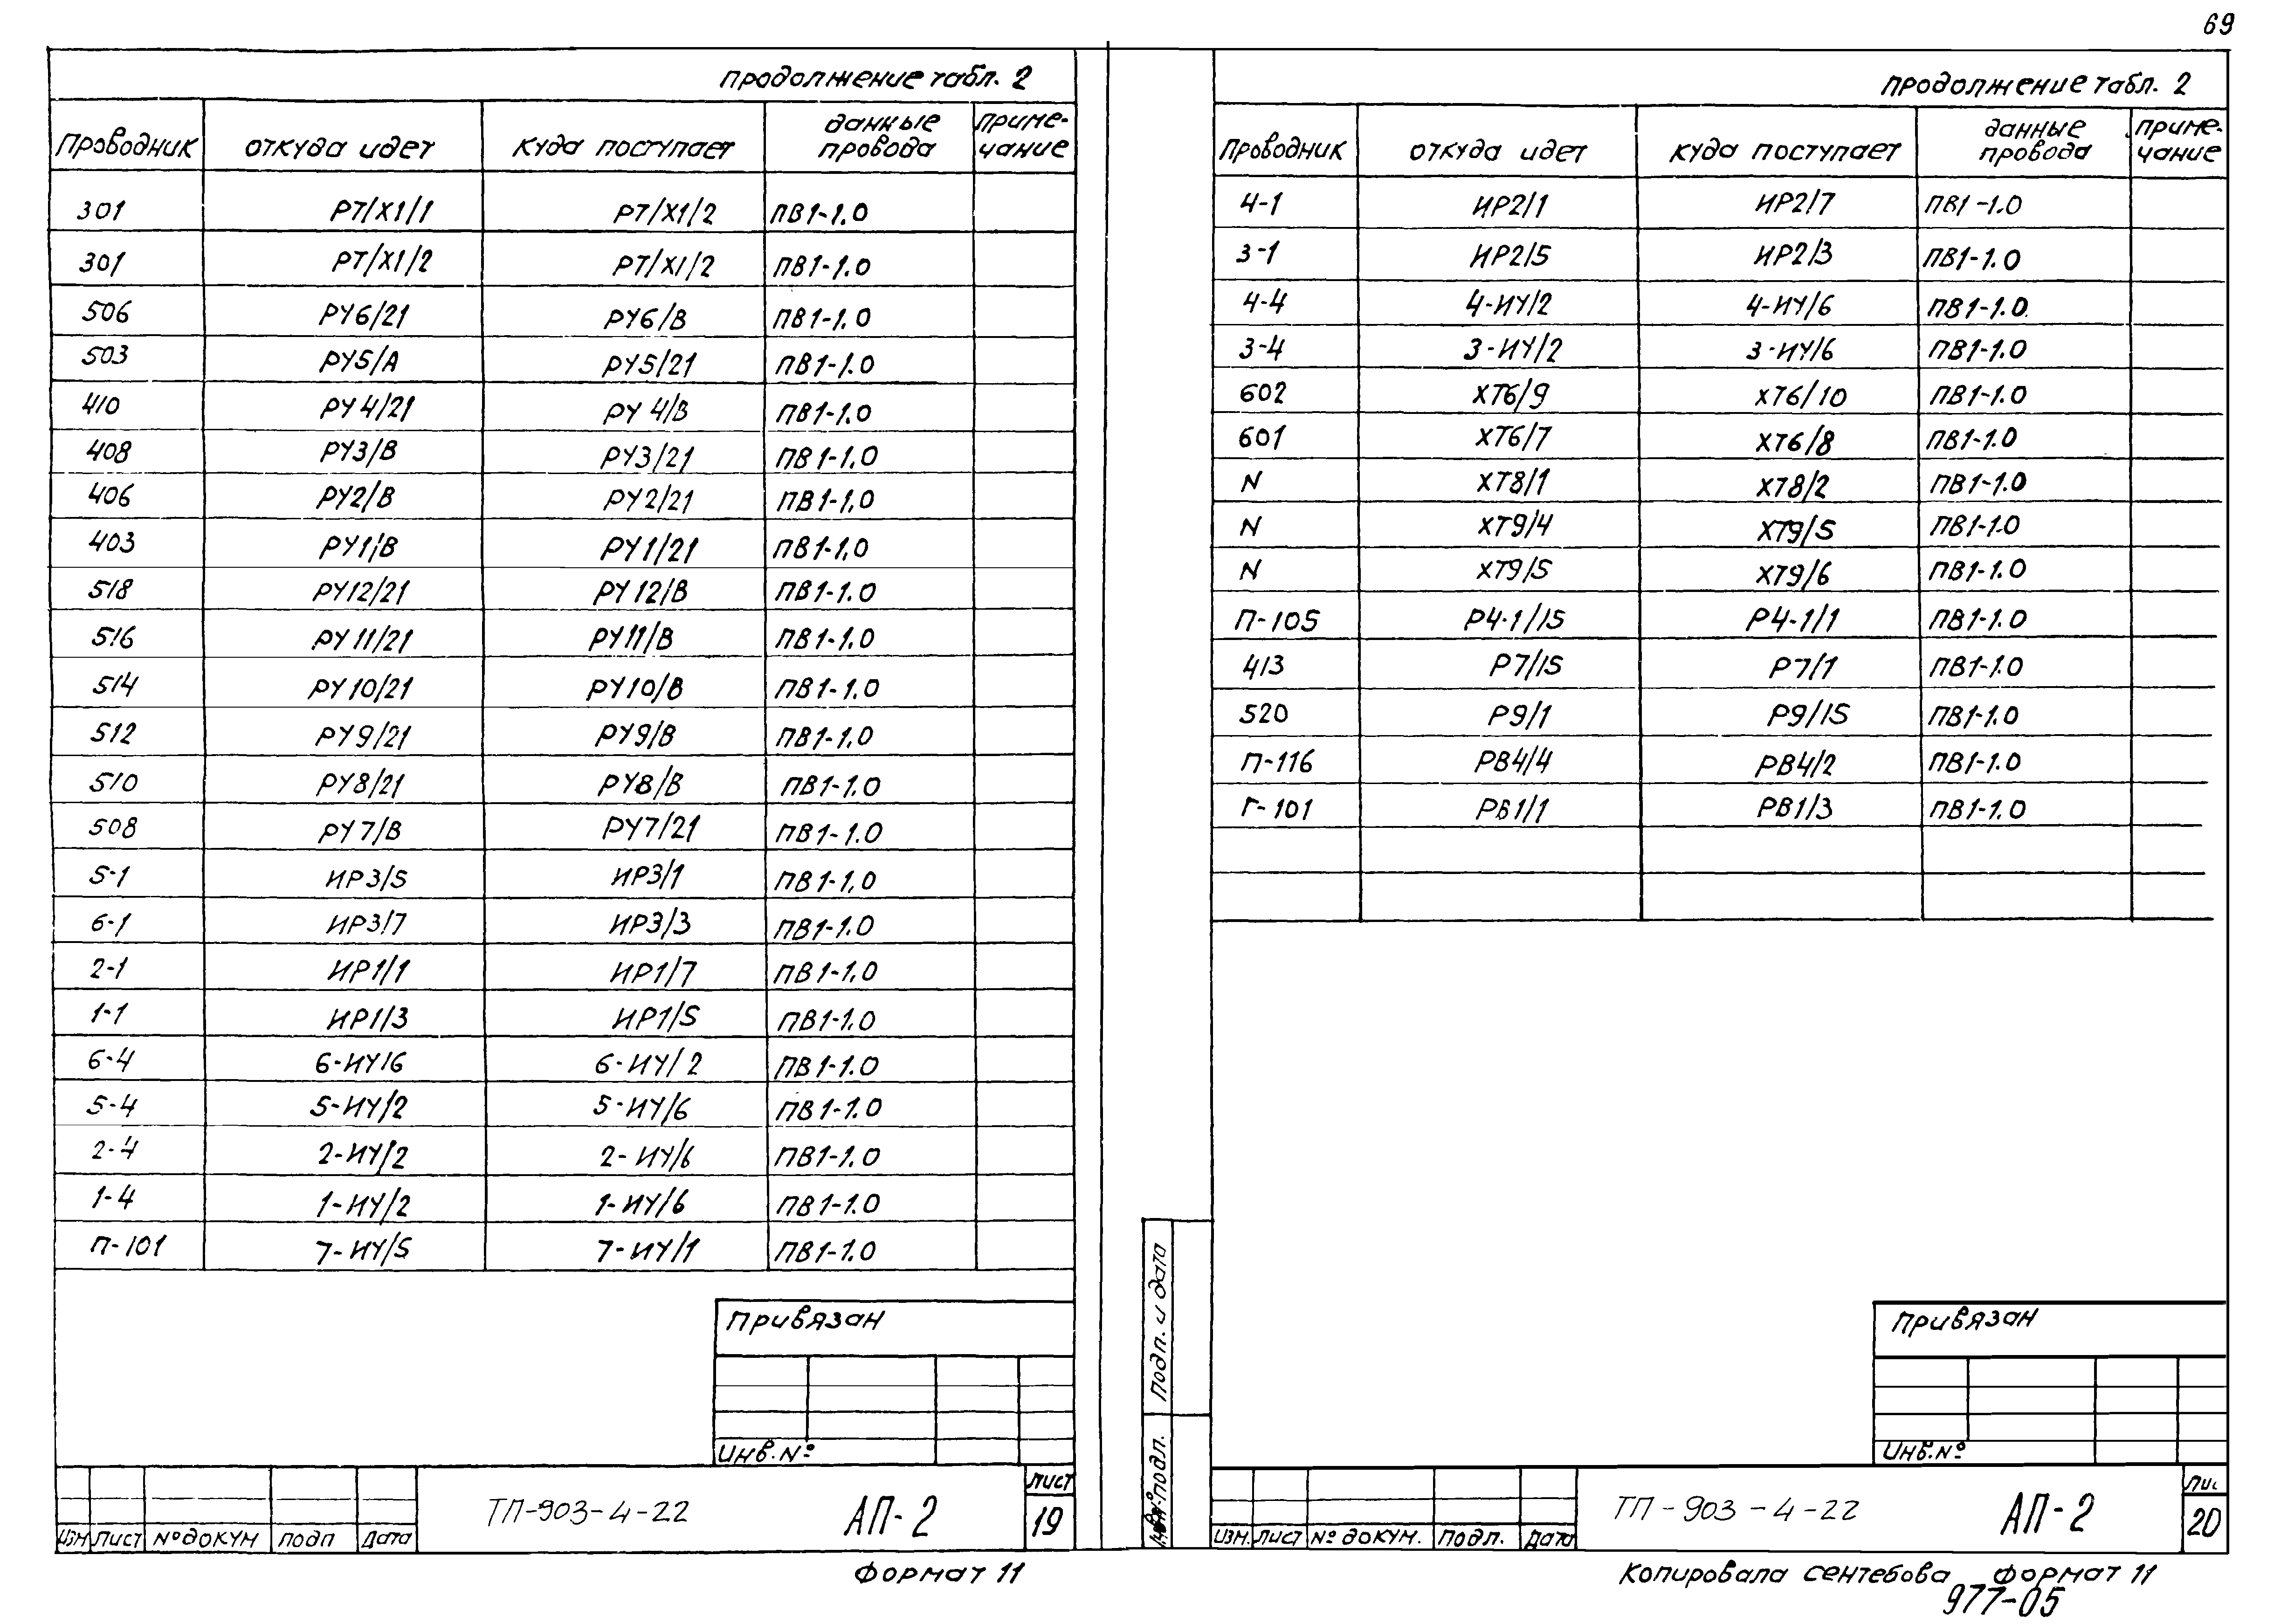 69
Продолжение табл. 2
Проводник откуда идет куда поступает данные провода Приме-чание
301 РТ/Х1/1 РТ/Х1/2 ПВ1-1.0
301 РТ/Х1/2 РТ/Х1/2 ПВ1-1.0
506 РУ6/21 РУ6/В ПВ1-1.0
503 РУ5/А РУ5/21 ПВ1-1.0
410 РУ4/21 РУ4/В ПВ1-1.0
408 РУ3/В РУ3/21 ПВ1-1.0
406 РУ2/В РУ2/21 ПВ1-1.0
403 РУ1/В РУ1/21 ПВ1-1.0
518 РУ12/21 РУ12/В ПВ1-1.0
516 РУ11/21 РУ11/В ПВ1-1.0
514 РУ10/21 РУ10/В ПВ1-1.0
512 РУ9/21 РУ9/В ПВ1-1.0
510 РУ8/21 РУ8/В ПВ1-1.0
508 РУ7/В РУ7/21 ПВ1-1.0
5-1 ИР3/5 ИР3/1 ПВ1-1.0
6-1 ИР3/7 ИР3/3 ПВ1-1.0
2-1 ИР1/1 ИР1/7 ПВ1-1.0
1-1 ИР1/3 ИР1/5 ПВ1-1.0
6-4 6-ИУ/6 6-ИУ/2 ПВ1-1.0
5-4 5-ИУ/2 5-ИУ/6 ПВ1-1.0
2-4 2-ИУ/2 2-ИУ/6 ПВ1-1.0
1-4 1-ИУ/2 1-ИУ/6 ПВ1-1.0
П-101 7-ИУ/5 7-ИУ/1 ПВ1-1.0
Привязан
Инв.№
Изм Лист № докум подп Дата
ТП-903-4-22 АП-2
Лист
19
Формат 11
Продолжение табл. 2
Проводник откуда идет куда поступает данные провода приме-чание
4-1 ИР2/1 ИР2/7 ПВ1-1.0
3-1 ИР2/5 ИР2/3 ПВ1-1.0
4-4 4-ИУ/2 4-ИУ/6 ПВ1-1.0
3-4 3-ИУ/2 3-ИУ/6 ПВ1-1.0
602 ХТ6/9 ХТ6/10 ПВ1-1.0
601 ХТ6/7 ХТ6/8 ПВ1-1.0
N ХТ8/1 ХТ8/2 ПВ1-1.0
N ХТ9/4 ХТ9/5 ПВ1-1.0
N ХТ9/5 ХТ9/6 ПВ1-1.0
П-105 Р4-1/15 Р4-1/1 ПВ1-1.0
413 Р7/15 Р7/1 ПВ1-1.0
520 Р9/1 Р9/15 ПВ1-1.0
П-116 РВ4/4 РВ4/2 ПВ1-1.0
Г-101 РВ1/1 РВ1/3 ПВ1-1.0
Подп. и дата
Инв.№ подл.
Привязан
Инв.№
Изм. Лист № докум. Подп. Дата
ТП-903-4-22 АП-2
Лис
20
Копировала Сентебова Формат 11
977-05